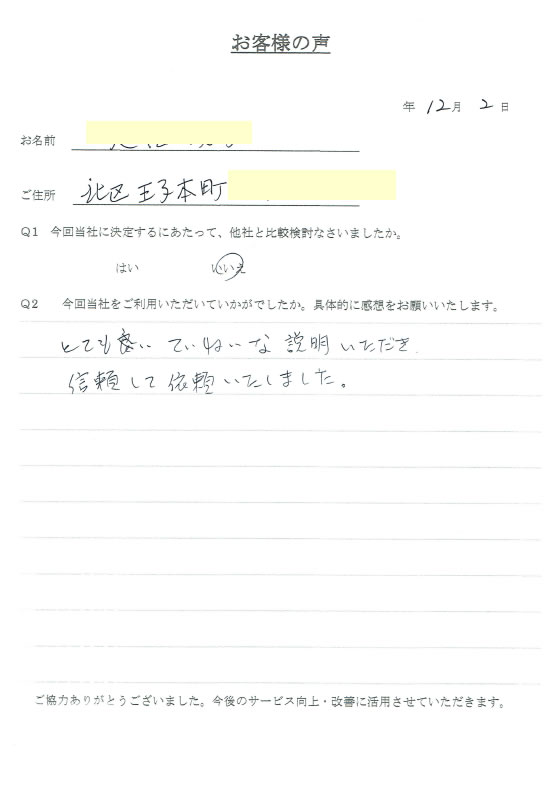 お客様の声
年 12月 2日
お名前
ご住所 北区王子本町
Q1 今回当社に決定するにあたって、他社と比較検討なさいましたか。
はい いいえ
Q2 今回当社をご利用いただいていかがでしたか。具体的に感想をお願いいたします。
とても ていねいな 説明いただき
信頼して依頼いたしました。
ご協力ありがとうございました。今後のサービス向上・改善に活用させていただきます。